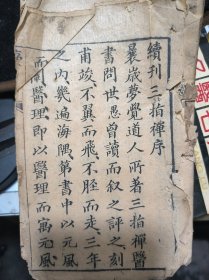 續刊三指禪序
曩歲夢覺道人所著三指禪醫
書問世愚曾讀而叙之評之刻
甫竣不翼而飛不脛而走三年
之内幾遍海隅第書中以元風
而闡醫理即以醫理而寓元風